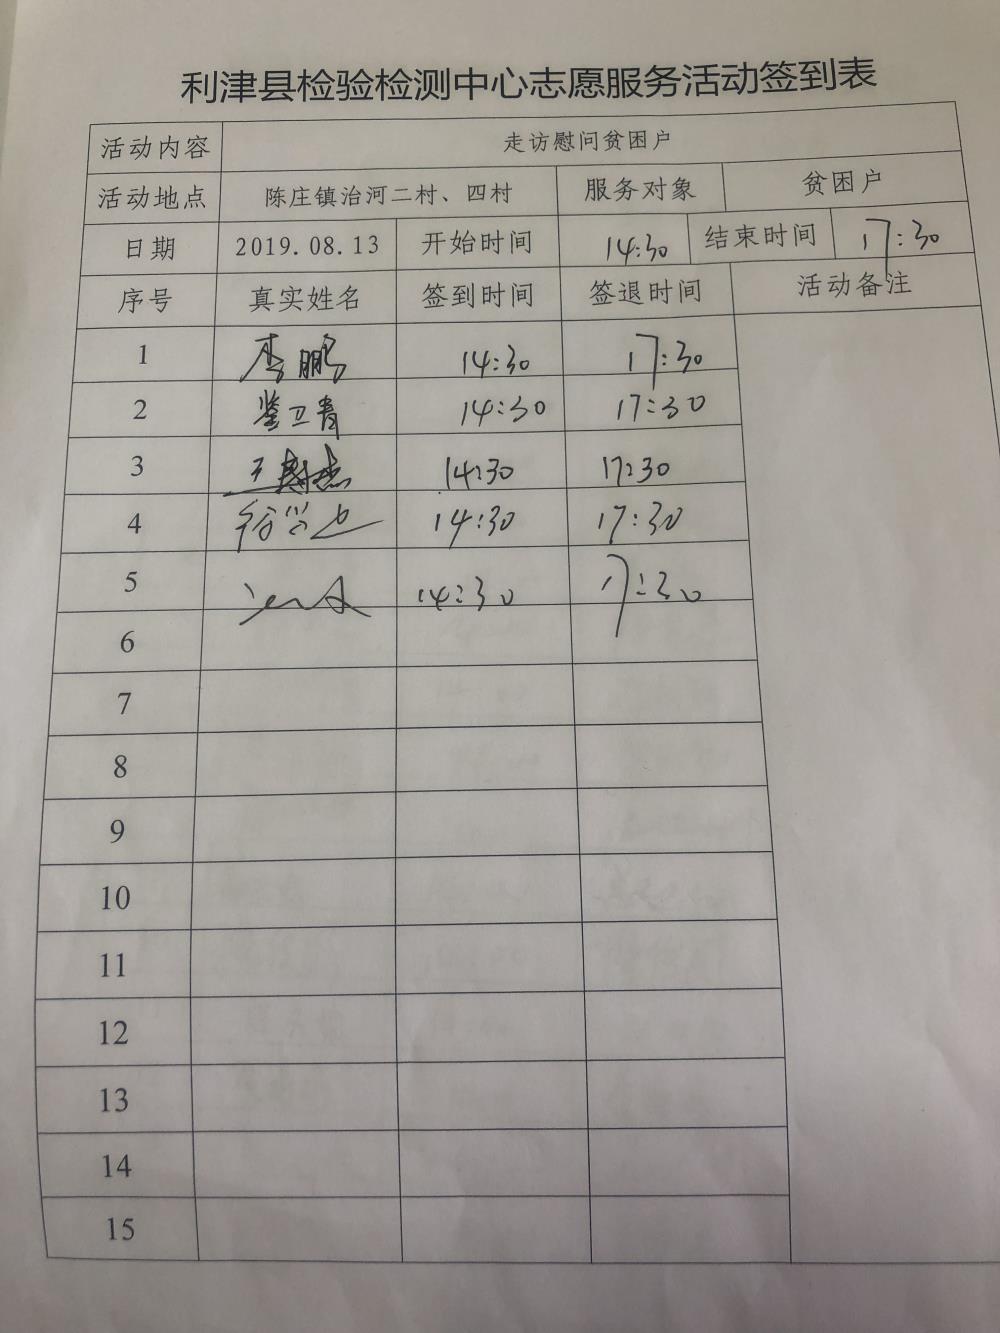 利津县检验检测中心志愿服务活动签到表
活动内容 走访慰问贫困户
活动地点 陈庄镇治河二村、四村 服务对象 贫困户
日期 2019.08.13 开始时间 14:30 结束时间 17:30
序号 真实姓名 签到时间 签退时间 活动备注
1 李鹏 14:30 17:30
2 卫青 14:30 17:30
3 王 杰 14:30 17:30
4 14:30 17:30
5 14:30 17:30
6
7
8
9
10
11
12
13
14
15